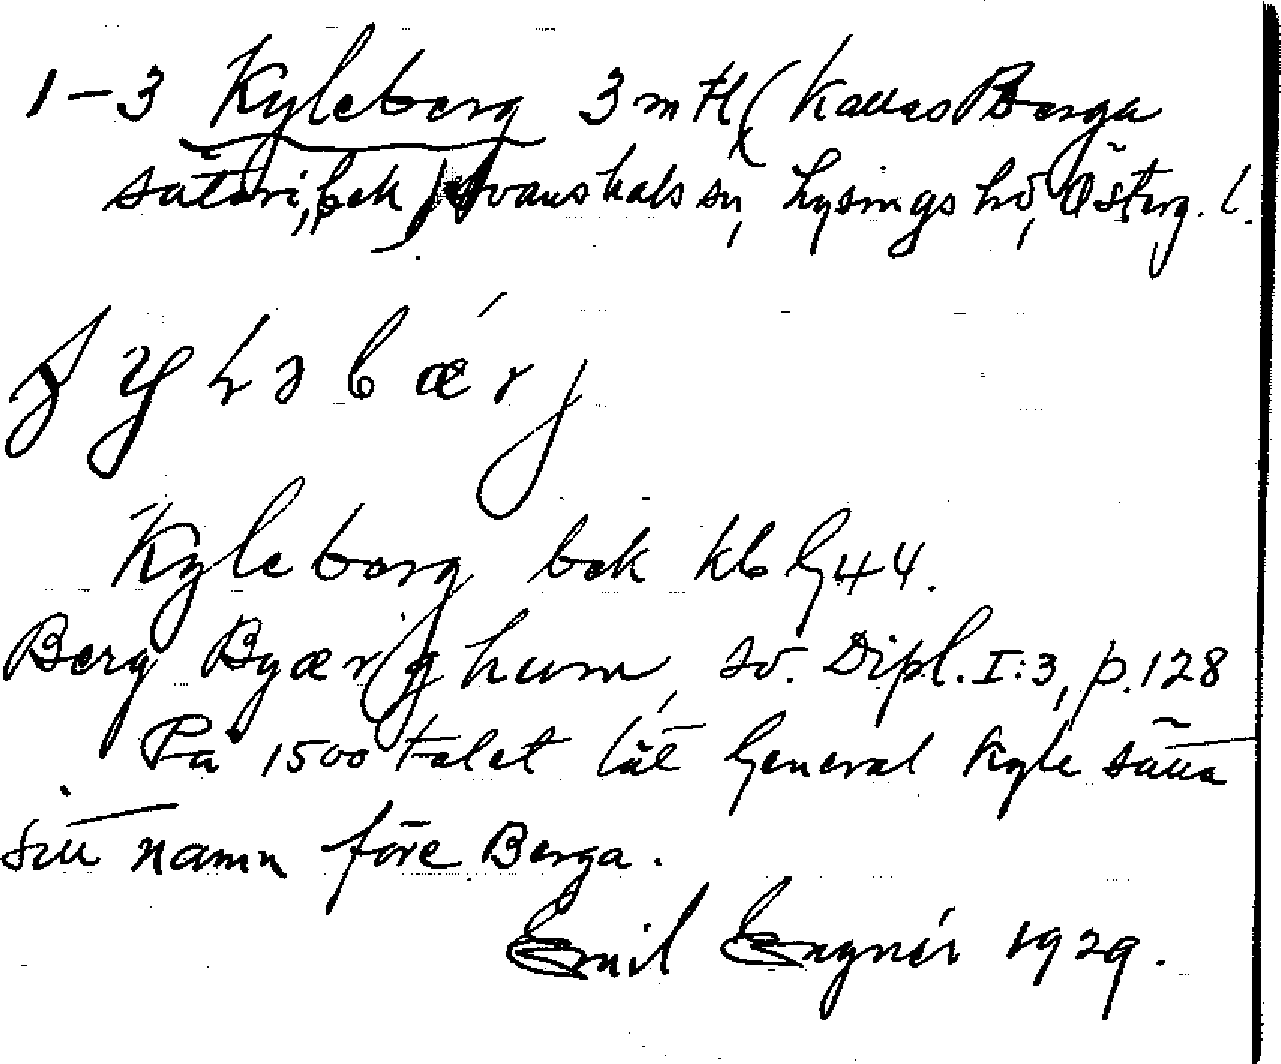 1-3 Kyleberg 3 mtl (kallas Berga
säteri, bek) Svanshals sn, Lysings hd, Österg. l.
Kyleberg bek kb G44.
Berg Byærghum, sv. Dipl. I:3, p. 128
På 1500 talet lät General Kyle sätta
sitt namn före Berga.
Emil Engnér 1929.